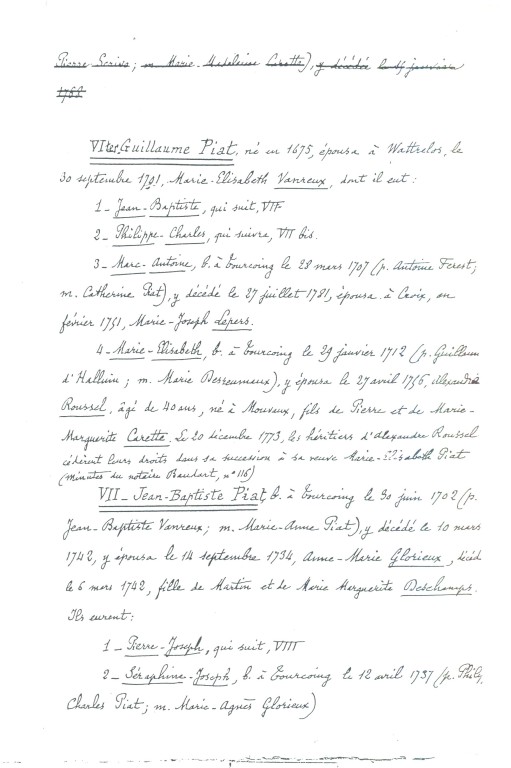 Pierre Scrive; m. Marie-Madeleine Carette), y décédé le 19 janvier
1762
VI ter. Guillaume Piat, né en 1675, épousa à Wattrelos, le
30 septembre 1701, Marie-Elisabeth Vanreux, dont il eut:
1 - Jean-Baptiste, qui suit, VII
2 - Philippe-Charles, qui suivra, VII bis.
3 - Marc-Antoine, b. à Tourcoing le 28 mars 1707 (p. Antoine Ferest;
m. Catherine Piat), y décédé le 27 juillet 1781, épousa à Croix, en
février 1751, Marie-Joseph Lepers.
4 - Marie-Elisabeth, b. à Tourcoing le 29 janvier 1712 (p. Guillaum
d'Halluin; m. Marie Desreumaux), y épousa le 27 avril 1756, Alexandre
Roussel, âgé de 40 ans, né à Mouvaux, fils de Pierre et de Marie-
Marguerite Carette. Le 20 décembre 1773, les héritiers d'Alexandre Roussel
cédèrent leurs droits dans sa succession à sa veuve Marie-Elisabeth Piat
(minutes du notaire Baudart, n° 116)
VII - Jean-Baptiste Piat, b. à Tourcoing le 30 juin 1702 (p.
Jean-Baptiste Vanreux; m. Marie-Anne Piat), y décédé le 10 mars
1742, y épousa le 14 septembre 1734, Anne-Marie Glorieux, décéd
le 6 mars 1742, fille de Martin et de Marie Marguerite Deschamps.
Ils eurent:
1 - Pierre-Joseph, qui suit, VIII
2 - Séraphine-Joseph, b. à Tourcoing le 12 avril 1737 (p. Philip
Charles Piat; m. Marie-Agnès Glorieux)